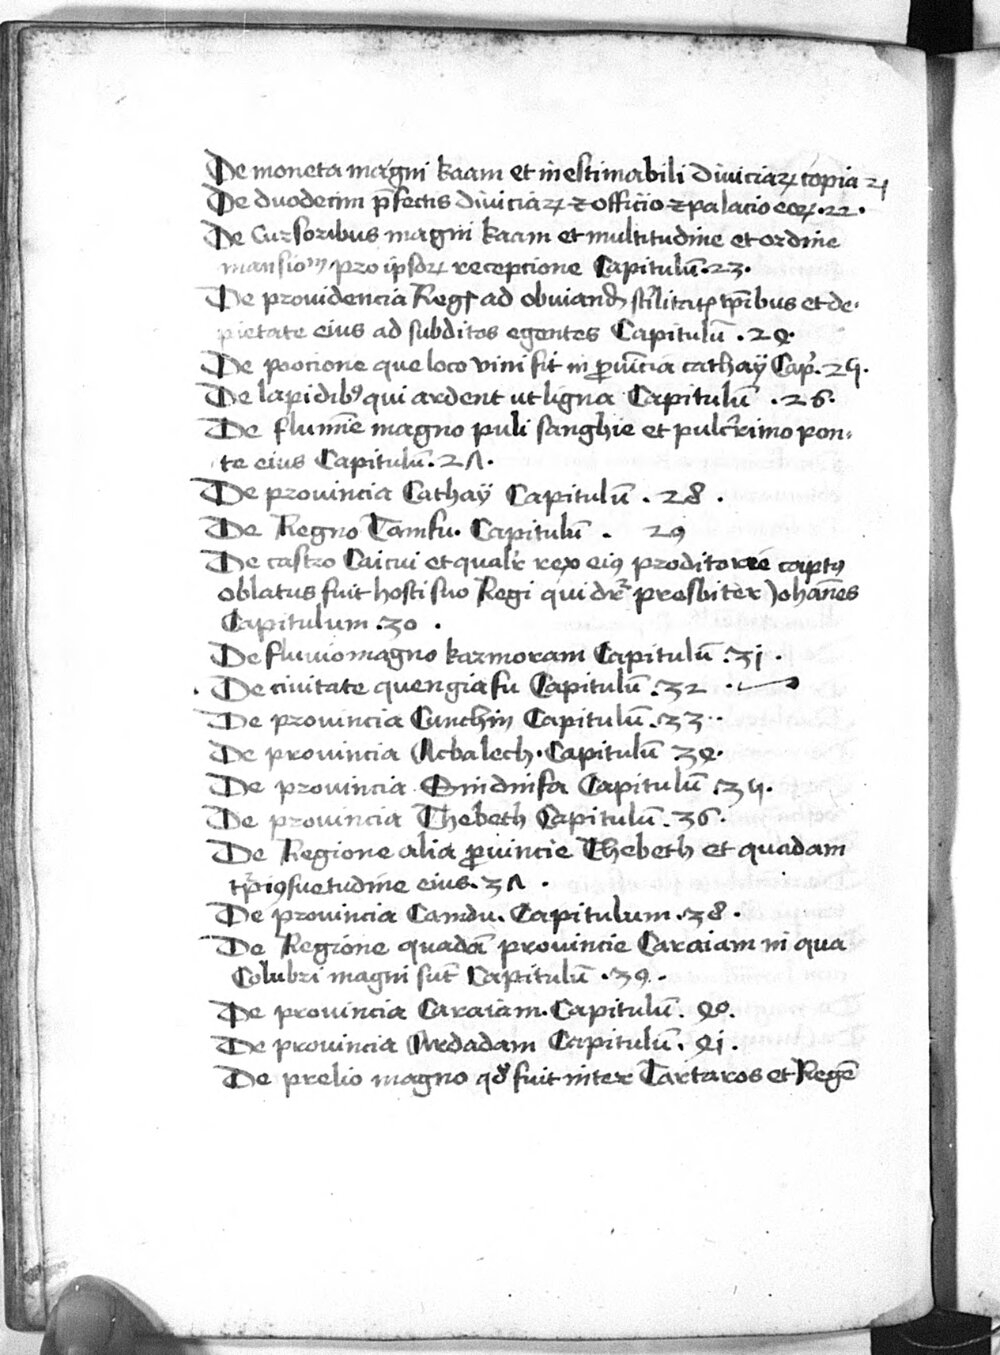 De moneta magni kaam et inestimabili diviciaꝝ copia 21
De duodecim p̄fectis diviciaꝝ ⁊ officiio ⁊ palacio eoꝝ .22.
De Cursoribus magni kaam et multitudine et ordine
mansioꝝ pro ipsoꝝ recepcione Capitulū .23.
De providencia Regꝭ ad obviandꝭ st'ilitatꝭ tp̄ribus et de
pietate eius ad subditos egentes Capitulū .24.
De pocione que loco vini fit in ꝓvīcia cathaÿ Cap̄. 25.
De lapidibꝰ qui ardent ut ligna Capitulū .26.
De flumīe magno puli sanghie et pulcrimo pon-
te eius Capitulū .27.
De provincia Cathaÿ Capitulū . 28 .
De Regno Tamfu. Capitulū . 29
De castro Caicui et qualr̄ rex eiꝰ proditorie captꝰ
oblatus fuit hosti suo Regi qui dr̄ presbiter Johānes
Capitulum .30 .
De fluvio magno karmoram Capitulū .31 .
De civitate quengiafu Capitulū .32 .
De provincia Cunchin Capitulū .33 .
De provincia Acbalech. Capitulū 34.
De provincia Sindinfa Capitulū .35.
De provincia Thebeth Capitulū .36.
De Regione alia ꝓvincie Thebeth et quadam
tp̄i ꝯsuetudine eius .37 .
De provincia Camdu. Capitulum .38 .
De Regione quadā provincie Caraiam in qua
Colubri magni sūt Capitulū .39 .
De provincia Caraiam. Capitulū . 40.
De provincia Ardadam Capitulū . 41 .
De prelio magno qd̄ fuit inter Tartaros et Regē